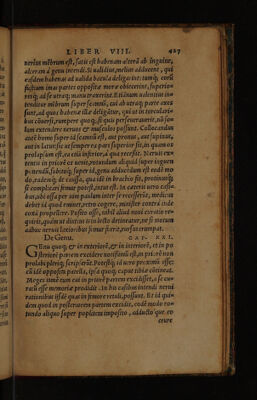 LIBER VIII. 427
neruus mẽbrum est, satis est habenam alterã ab inguine,
alteram à genu intendi. Si validius, melius adducent, qui
easdem habenas ad valida bacula deligarint: tumq́; cum
fustium imas partes oppositæ moræ obiecerint, superio-
resq́; ad se vtraq; manu traxerint. Etiãnum valentius in-
tenditur mẽbrum super scamnũ, cui ab vtraq; parte axes
sunt, ad quos habenæ illæ deligãtur, qui vt in torculari-
bus cõuersi, rumpere quoq;, si quis perseuerauerit, nõ so-
lum extendere neruos & musculos possunt. Collocandus
autẽ homo super id scamnũ est, aut pronus, aut supinus,
aut in latus: sic vt semper ea pars superior sit, in quam os
prolapsum est, ea verò inferior, à qua recessit. Neruis ex-
tentis in priorẽ os venit, rotundum aliquid super inguen
ponendũ, subitoq́; super id, genu adducendum est eodẽ mo
do, eademq́; de causa, qua idẽ in brachio fit, protinusq́;
si complicari femur potest, intus est. In ceteris verò casi-
bus, vbi ossa per vim paulum inter se recesserint, medicus
debet id quod eminet, retro cogere, minister contra inde
coxã propellere. Reposito osse, nihil aliud noui curatio re-
quirit, quàm vt diutius is in lecto detineatur, ne si motum
adhuc neruis laxioribus femur fuerit, rursus erumpat.
De Genu. CAP. XXI.
GEnu quoq; & in exteriorẽ, & in interiorẽ, et in po
steriorẽ partem excidere notissimũ est, in priorẽ non
prolabi pleriq; scripserũt. Potestq́; id vero proximũ esse:
cũ idẽ opposita patella, ipsa quoq; caput tibiæ cõtineat.
Meges tamẽ eum cui in priorẽ partem excidisset, a se cu-
ratũ esse memoriæ prodidit. In his casibus intendi nerui
rationibus iisdẽ quas in femore retuli, possunt. Et id qui-
dem quod in posteriorem partem excidit, eodẽ modo ro-
tundo aliquo super poplitem imposito, adductoq́; eo
crure